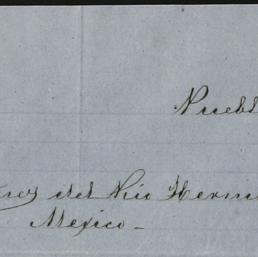 Puebl
del Rio Herm
Mexico -